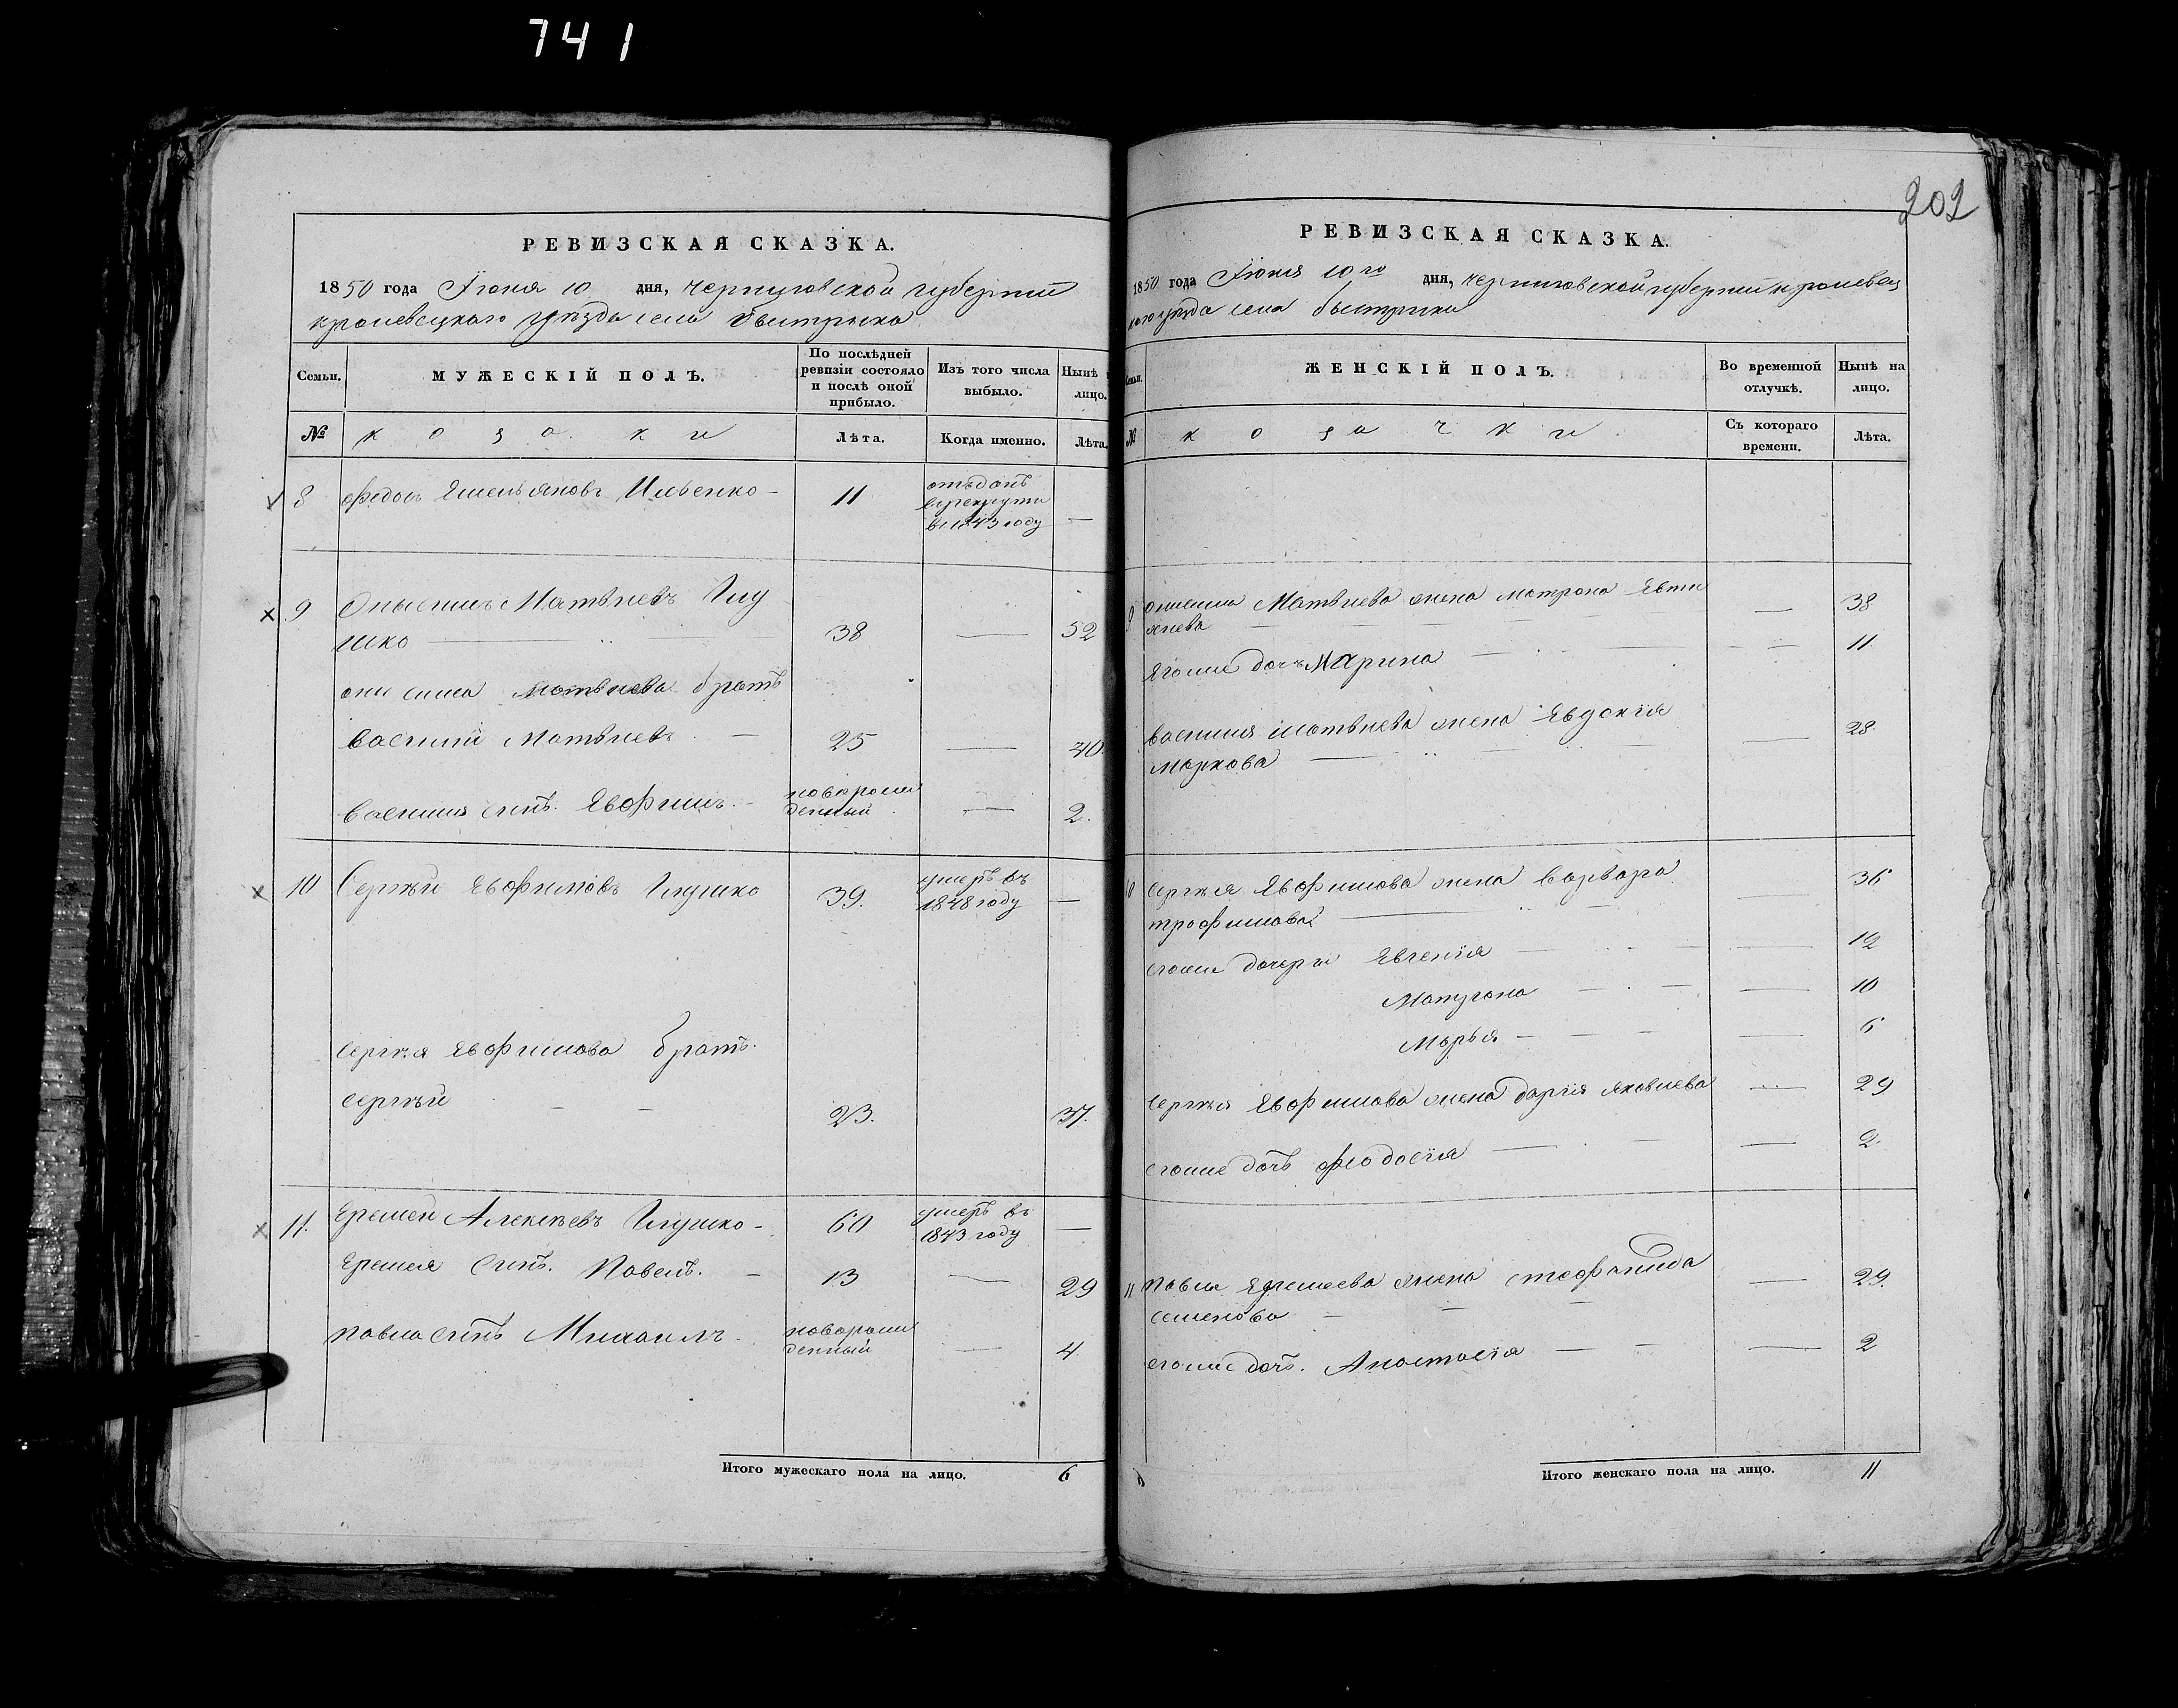 741
202
РЕВИЗСКАЯ СКАЗКА.
1850 года Іюня 10 дня, Черниговской губерніи
кролевецкаго уѣзда села быстрыка
Семьи.
МУЖЕСКІЙ ПОЛЪ.
По послѣдней
ревизіи состояло
и послѣ оной
прибыло.
Изъ того числа
выбыло.
Нынѣ
лицо.
№
козаки
Лѣта.
Когда именно.
Лѣта.
8 Федоръ Емельяновъ Ильенко 11 отъданъ
врекруты
в 1843 году —
9 Онысимъ Матвѣевъ Глу
шко 38 — 52
онисима Матвѣева братъ
Василій Матвѣевъ — 25 — 40.
Василия сынъ Евфимъ — новорож
денный — 2.
10 Сергѣй Евфимовъ Глушко 39. умеръ въ
1848 году —
Сергѣя Евфимова братъ
Сергѣй — — 23. 37.
11. Еремей Алексѣевъ Глушко - 60 умеръ въ
1843 году —
Еремея Сынъ Павелъ. — 13 — 29
Павла Сынъ Михаилъ. новорож
денный — 4
Итого мужескаго пола на лицо. 6
РЕВИЗСКАЯ СКАЗКА.
1850 года Іюня 10го дня, Черниговской губерніи кролевец
каго уѣзда села быстрыка
ЖЕНСКІЙ ПОЛЪ.
Во временной
отлучкѣ.
Нынѣ на
лицо.
№
козачки
Съ котораго
времени.
Лѣта.
9 Онисима Матвѣева жена Матрона Евти
хіева — 38
Егоже дочь Марина — 11
Василия Матвѣева жена Евдокія
Маркова — 28.
10 Сергѣя Евфимова жена Варвара
трофимова — 36
Егоже дочери Евгенія — 12
Матрона — 10
Марья — 6
Сергѣя Евфимова жена Дарія Яковлева — 29
Егоже дочь Феодосія — 2.
11 Павла Еремеева жена Стефанида
Семенова — 29.
Егоже дочь. Анастасія — 2
Итого женскаго пола на лицо. 11